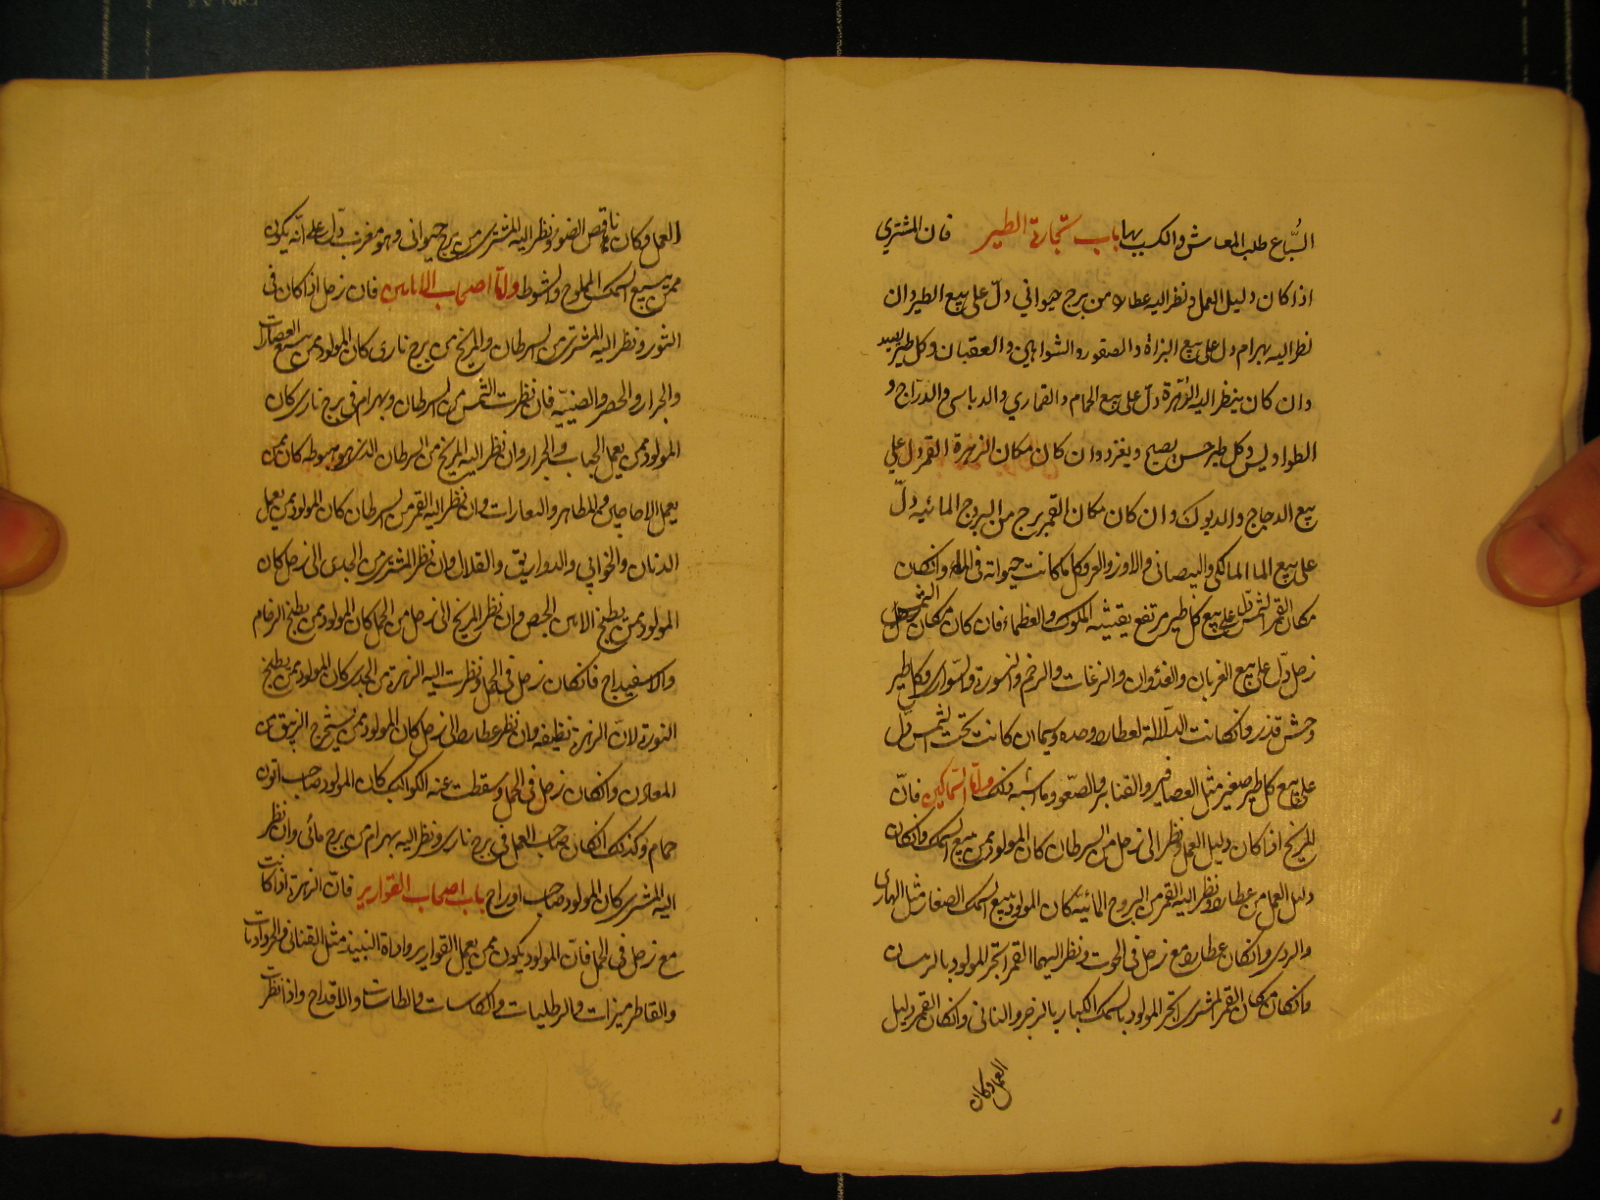 السباع طلب المعاش والكسب بها باب تجارة الطير فان المشتري
اذا كان دليل العمل ونظر اليه عطارد من برج هوائي دلّ على بيع الطير وان
نظر اليه بهرام دل على بيع البزاة والصقور والشواهين والعقبان وكل طير يصيد
وان كان ينظر اليه الزهرة دلّ على بيع الحمام والقماري والدباسي والدراج و
الطواويس وكل طير حسن يصيح ويغرد وان كان مكان الزهرة القمر دل على
بيع الدجاج والديوك وان كان مكان القمر برج من البروج المائيه دلّ
على بيع الما المالكي والبيضاني والاوز والغر وكل ما كانت حيواته في الماء وانكان
مكان القمر الشمس دل على بيع كل طير مرتفع يقتنيه الملوك والعظماء فان كان مكان الشمس
زحل دلّ على بيع الغربان والغدوان والزغات والرخم والنسورة وكل طير
وحش قذر وانكانت الدلالة لعطارد وحده وسيما ان كانت تحت الشمس دلّ
على بيع كل طير صغير مثل العصافير والقنابر والصعو وما اشبه ذلك وامّا السماكين فانّ
المريخ اذا كان دليل العمل ونظر الى زحل من السرطان كان المولود ممن يبيع السمك وانكان
دليل العمل من عطارد ونظر اليه القمر من البروج المائيه كان المولود يبيع السمك الصغار مثل
وانكان عطارد مع زحل في الحوت ونظر اليهما القمر اتجر المولود
وانكان مكان القمر المشتري اتجر المولود بالسمك الكبار وانكان القمر دليل
العمل وكان
العمل وكان ناقص الضوء ونظر اليه المشتري من برج حيواني وهو مغرب دلّ على انّه يكون
ممن يبيع السمك المملوح والشوط وامّا اصحاب الاتاتين فان زحل اذا كان في
الثور ونظر اليه المشتري من السرطان والمريخ من برج ناري كان المولود ممن يبيع الغضارات
والجرار والصينيّه فان نظرت الشمس من السرطان وبهرام في برج ناري كان
المولود ممن يعمل الجباب والجرار وان نظر اليه المريخ من السرطان الذي هو هبوطه كان ممن
يعمل الاجاجين والمطاهر وان نظر اليه القمر من السرطان كان المولود ممن يعمل
الدنان والخوابي والدواريق والقلال وان نظر المشتري من الجدي الى زحل كان
المولود ممن يطبخ الجص وان نظر المريخ الى زحل من الحمل كان المولود ممن يطبخ الرخام
والاسفيداج فانكان زحل في الحمل ونظرت اليه الزهرة من الجدي كان المولود ممن يطبخ
النورة لانّ الزهرة نظيفه وان نظر عطارد الى زحل كان المولود ممن يستخرج الزيبق من
المعادن وانكان زحل في الحمل وسقطت عنه الكواكب كان المولود صاحب اتون
حمام وكذلك انكان صاحب العمل في برج ناري ونظر اليه بهرام من برج مائي وان نظر
اليه المشتري كان المولود صاحب باب اصحاب القوارير فانّ الزهرة اذا كانت
مع زحل في الحمل فانّ المولود يكون ممن يعمل القوارير واداة النبيذ مثل القناني
والقاطرميزات والرطليات والكاسات والطاسات والاقداح واذا نظرت